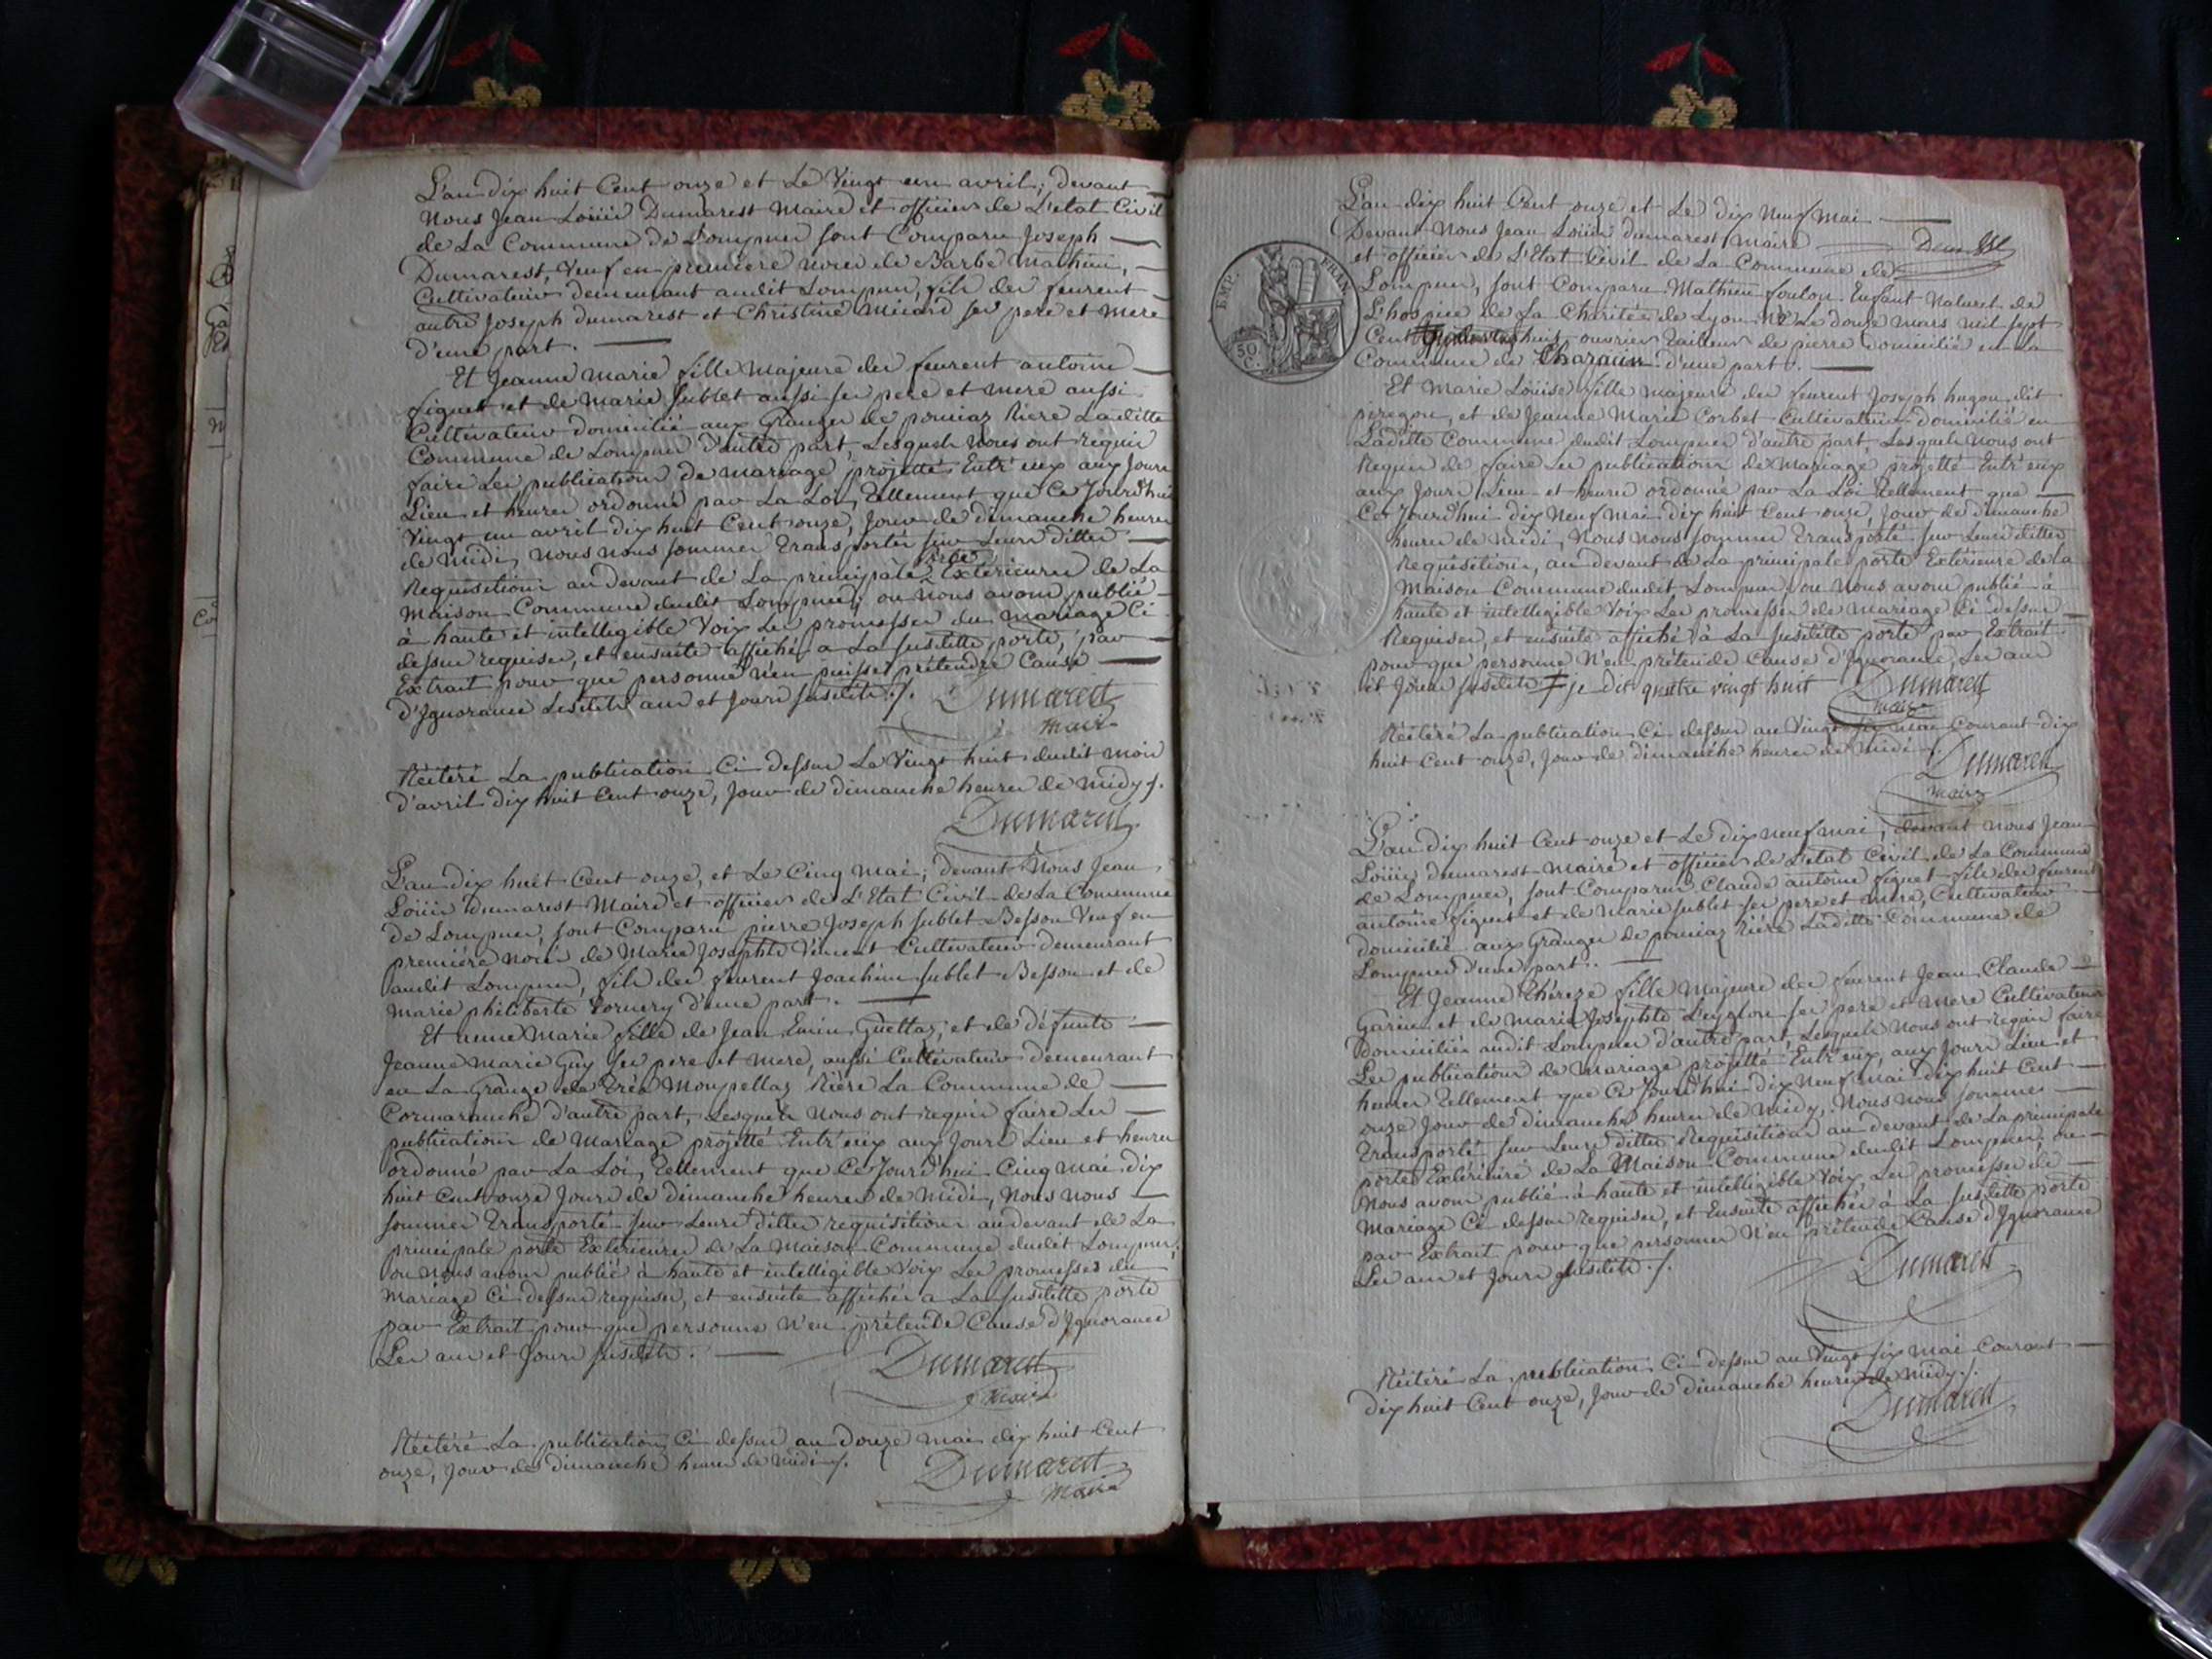 L'an dix huit Cent onze et Le Vingt un avril; devant
Nous Jean Loüis Dumarest Maire et officier de L'etat Civil
de La Commune de Lompnes sont Comparu Joseph
Dumarest, Veuf en premiere noces de Barbe Mathieu,
Cultivateur demeurant audit Lompnes, fils des feurent
autre Joseph dumarest et Christine Micard ses pere et mere
d'une part.
Et Jeanne Marie fille Majeure des feurent antoine
figuet et de Marie Sublet aussi ses pere et mere aussi
Cultivateurs domicilié aux Granges de pomiaz Riere Laditte
Commune de Lompnes d'autre part, Lesquels Nous ont requis
faire Les publications de mariage projetté Entr'eux aux Jours
Lieu et heures ordonné par La Loi, Tellement que Ce Jourd'hui
Vingt un avril dix huit Cent onze, Jour de dimanche heures
de Midi, nous nous sommes Transportés sur Leurs dittes
Requisitions au devant de La principale porte Exterieures de La
Maison Commune dudit Lompnes, ou nous avons publié
à haute et intelligible Voix Les promesses du mariage Ci
dessus requises, et ensuite affichés a La susditte porte, par
Extrait pour que personne n'en puisse prétendre Cause
d'Ignorance Lesdits ans et Jours susdits ./. Dumarest
Maire
Réitéré La publication Ci dessus Le Vingt huit dudit mois
d'avril dix huit Cent onze, Jour de dimanche heures de midy ./.
Dumarest
L'an dix huit Cent onze, et Le Cinq Mai; devant Nous Jean
Loüis Dumarest Maire et officier de L'Etat Civil de La Commune
de Lompnes, sont Comparu pierre Joseph Sublet Besson Veuf en
premiére noces de Marie Josephte Vincent Cultivateur demeurant
audit Lompnes, fils des feurent Joachim Sublet Besson et de
Marie philiberte Cornery d'une part.
Et anne Marie fille de Jean Emin Guettaz; et de défunte
Jeanne Marie Guy ses pere et mere, aussi Cultivateurs demeurant
en La Grange de Monpellaz Riére La Commune de
Cormaranche d'autre part, Lesquels Nous ont requis faire Les
publications de Mariage projetté Entr'eux aux Jours Lieu et heures
ordonné par La Loi, Tellement que Ce Jourd'hui Cinq Mai dix
huit Cent onze Jours de dimanche heures de Midi, Nous nous
sommes Transporté sur Leurs dittes requisitions au devant de La
principale porte Exterieures de La Maison Commune dudit Lompnes,
ou nous avons publié à haute et intelligible Voix Les promesses du
Mariage Ci dessus requises, et ensuite affichés a La susditte porte
par Extrait pour que personne n'en prétende Cause d'Ignorance
Les ans et Jours susdits. Dumarest
Maire
Réitéré La publication Ci dessus au Douze Mai dix huit Cent
onze, Jour de dimanche heures de midi ./. Dumarest
Maire
L'an dix huit Cent onze et Le dix Neuf Mai
Devant Nous Jean Loüis dumarest Maire
et officier de L'Etat Civil de La Commune de
Lompnes, sont Comparu Mathieu foulon Enfant Naturel de
L'hospice de La Charitée de Lyon Né Le douze Mars mil sept
Cent huit, ouvrier Tailleur de pierre domicilié en La
Commune de Charancin d'une part.
EMP. FRAN.
50 C.
Et Marie Loüise fille majeure des feurent Joseph hugon dit
perregon, et de Jeanne Marie Corbet Cultivateurs domicilié en
Laditte Commune dudit Lompnes d'autre part, Lesquels Nous ont
Requis de faire Les publications de Mariage projetté Entr'eux
aux Jours Lieu et heures ordonné par La Loi Tellement que
Ce Jourd'hui dix Neuf Mai dix huit Cent onze, Jour de dimanche
heures de Midi, Nous nous sommes Transporté sur Leurs dittes
Requisitions, au devant de La principale porte Extérieure de La
Maison Commune dudit Lompnes ou Nous avons publié à
haute et intelligible Voix Les promesses de Mariage Ci dessus
Requises, et ensuite affiché à La susditte porte par Extrait
pour que personne N'en prétende Cause d'Ignorance, Les ans
et Jours susdits ≠ je dit quatre vingt huit Dumarest
Maire
Réitéré La publication Ci dessus au Vingt six mai Courant dix
huit Cent onze, Jour de dimanche heures de Midi. Dumarest
Maire
L'an dix huit Cent onze et Le dix neuf mai, devant Nous Jean
Loüis dumarest Maire et officier de L'etat Civil de La Commune
de Lompnes, sont Comparus Claude antoine figuet fils des feurent
antoine figuet et de Marie Sublet ses pere et mere, Cultivateur
domicilié aux Granges de pomiaz Riére Laditte Commune de
Lompnes d'une part.
Et Jeanne Théreze fille Majeure des feurent Jean Claude
Garin et de Marie Josephte Leyglon ses pere et Mere Cultivateurs
domiciliés audit Lompnes d'autre part, Lesquels Nous ont requis faire
Les publications de Mariage projetté Entr'eux, aux Jours Lieu et
heures Tellement que Ce Jourd'hui dix Neuf Mai dix huit Cent
onze Jour de dimanche heures de midy, Nous nous sommes
Transporté sur Leurs dittes Requisitions au devant de La principale
porte Extérieure de La Maison Commune dudit Lompnes, ou
Nous avons publié à haute et intelligible Voix, Les promesses de
Mariage Ci dessus requises, et Ensuite affichés à La susditte porte
par Extrait pour que personnes N'en prétende Cause d'Ignorance
Les ans et Jours susdits ./. Dumarest
Réitéré La publication Ci dessus au Vingt six mai Courant
dix huit Cent onze, Jour de dimanche heures de Midy ./.
Dumarest